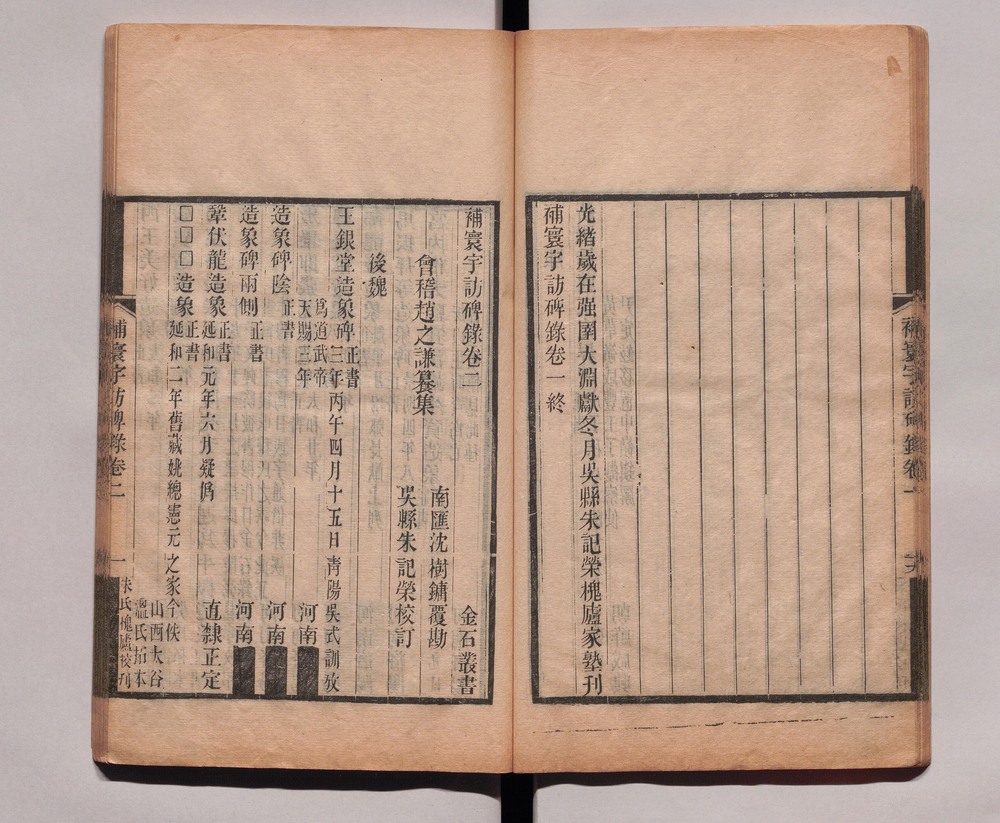 光緒歲在强圉大淵獻冬月吳縣朱記榮槐廬家塾刊
補寰宇訪碑錄卷一終
補寰宇訪碑錄卷一
補寰宇訪碑錄卷二 金石叢書
南匯沈樹鏞覆勘
會稽趙之謙纂集
吳縣朱記榮校訂
後魏
王銀堂造象碑 正書
三年丙午四月十五日青陽吳式訓攷
爲道武帝
天賜三年
河南
造象碑陰 正書 河南
造象碑兩側 正書 河南
韋伏龍造象 正書
延和元年六月疑僞 直隸正定
□□□造象 正書
延和二年舊藏姚總憲元之家今佚
山西大谷
溫氏拓本
補寰宇訪碑錄卷二 一
朱氏槐廬校刊